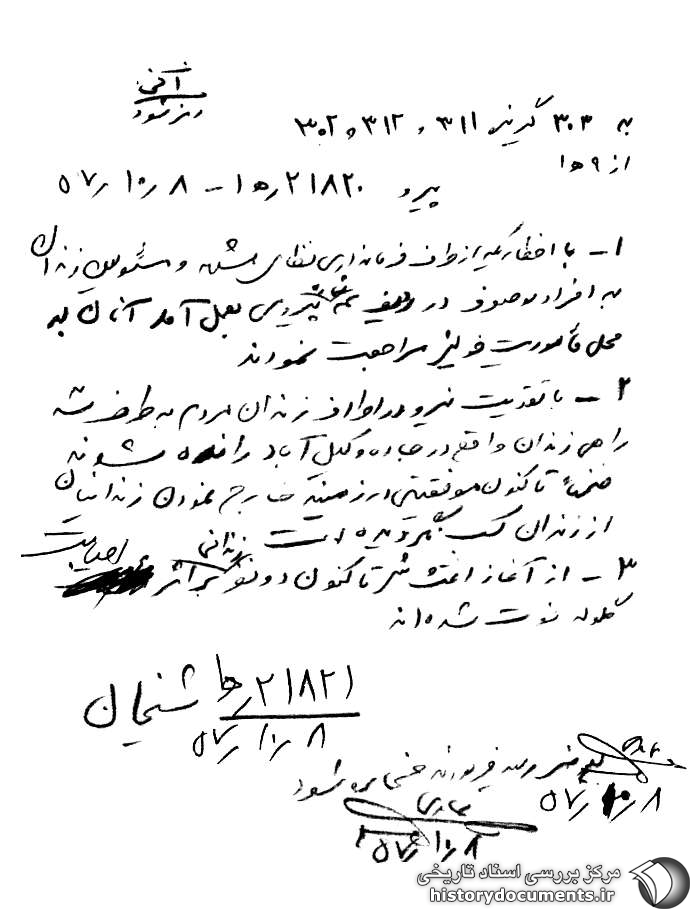 آنی
رمز شود
به ۳۰۳ گیرنده ۳۱۱ و ۳۱۲ و ۳۰۲
از ۹ ه‍ ۱
پیرو ۲۱۸۲۰ / ه‍ ۱ – ۸ / ۱۰ / ۵۷
۱ – با اخطاریکه از طرف فرمانداری نظامی مشهد و مسئولین زندان
به افراد موصوف در ردیف پیروی بعمل آمد آنان به
محل مأموریت خود نیز مراجعت نمودند
۲ – با تقویت نیرو در اطراف زندان مردم به طرف شهر
راهی زندان واقع در جاده وکیل آباد رانده میشوند
ضمناً تاکنون موفقیتی در زمینه خارج نمودن زندانیان
از زندان کسب نگردیده است
۳ – از آغاز اغتشاش تاکنون دو نفر زندانی بر اثر اصابت
گلوله فوت شده‌اند
۲۱۸۲۱ / ه‍ ۱
۸ / ۱۰ / ۵۷
شیخان
۸ / ۱۰ / ۵۷
شود
۸ / ۱۰ / ۵۷
مرکز بررسی اسناد تاریخی
historydocuments.ir